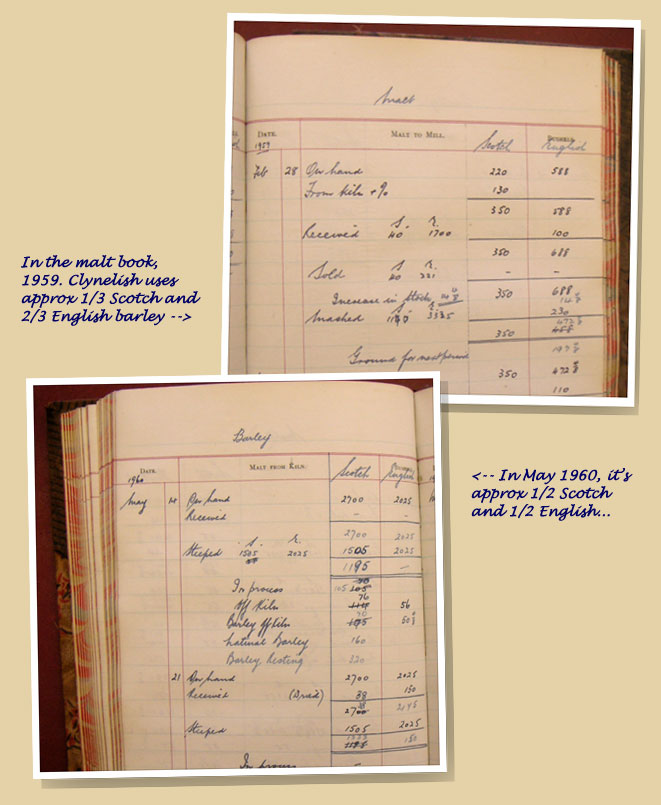 Malt
DATE. MALT TO MILL. Scotch English
1959
Feb 28 On hand 220 588
From Kiln + % 130
350 588
S. E.
Received 40 1700 100
350 688
S. E.
Sold 40 – –
Increase in Stock 350 688
Mashed 230
350
Ground for next period
350 672
110
In the malt book,
1959. Clynelish uses
approx 1/3 Scotch and
2/3 English barley -->
Barley
DATE. MALT FROM KILN. Scotch English
1960
May 14 On hand 2700 2025
Received – –
2700 2025
S. E.
Steeped 1505 2025 1505 2025
1195 –
In process 105
Off Kiln 76 56
Barley off kiln
Natural Barley 160
Barley Resting 320
21 On hand 2700 2025
Received (Dried) 38 150
Steeped 1505 2025
In process
<-- In May 1960, it's
approx 1/2 Scotch
and 1/2 English...